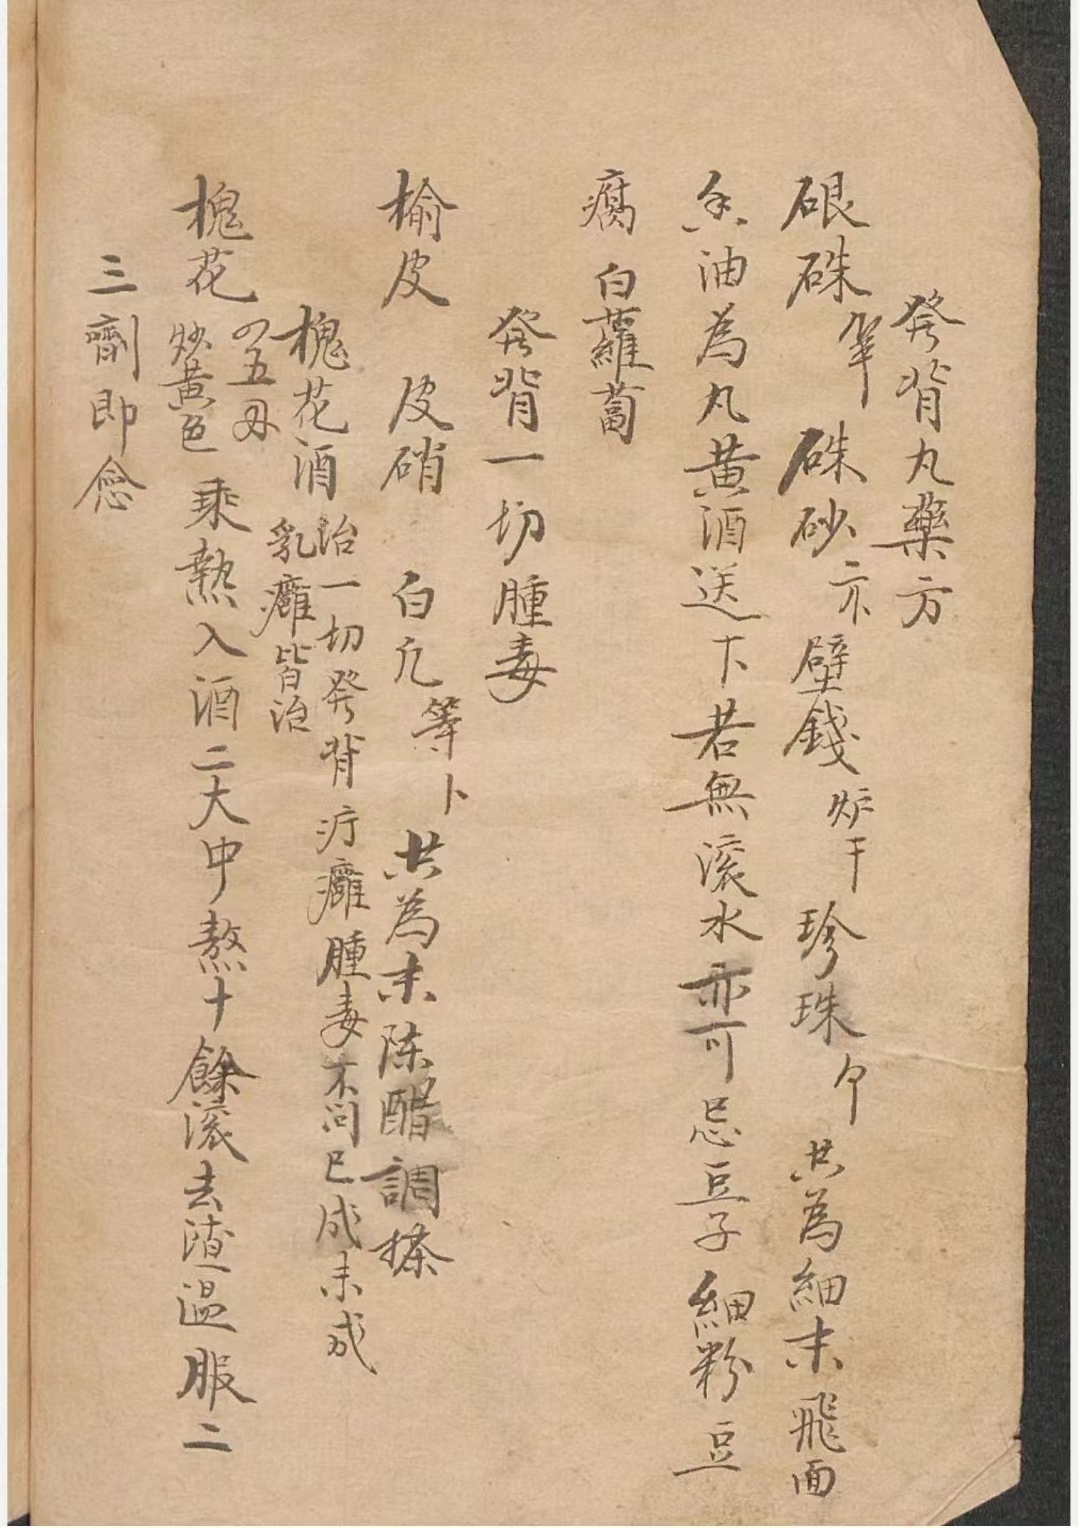 發背丸藥方
硍硃 硃砂 壁錢 炉干 珍珠 共為細末飛面
香油為丸黄酒送下若無滚水亦可忌豆子細粉豆
腐 白蘿蔔
發背一切腫毒
榆皮 皮硝 白凢 等卜 共為末陈醋調搽
槐花酒 治一切發背疔癰腫毒不問已成未成
乳癰皆治
槐花 四五 炒黄色 乘熱入酒二大中熬十餘滚去渣温服二
三劑即愈